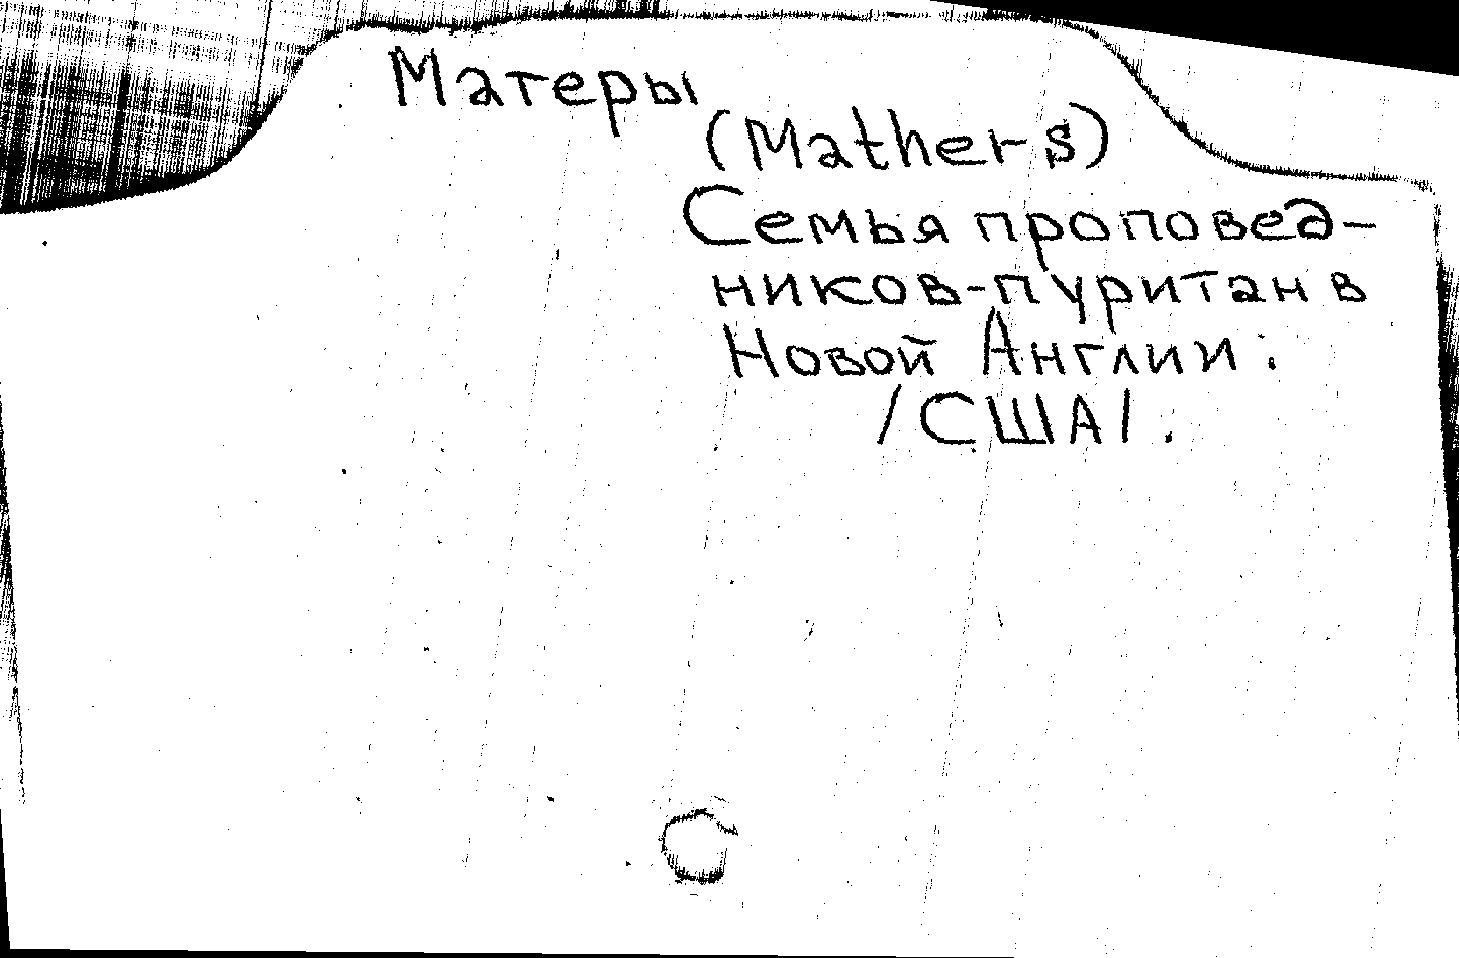 Матеры
(Mathers)
Семья проповед-
ников-пуритан в
Новой Англии.
/США/.